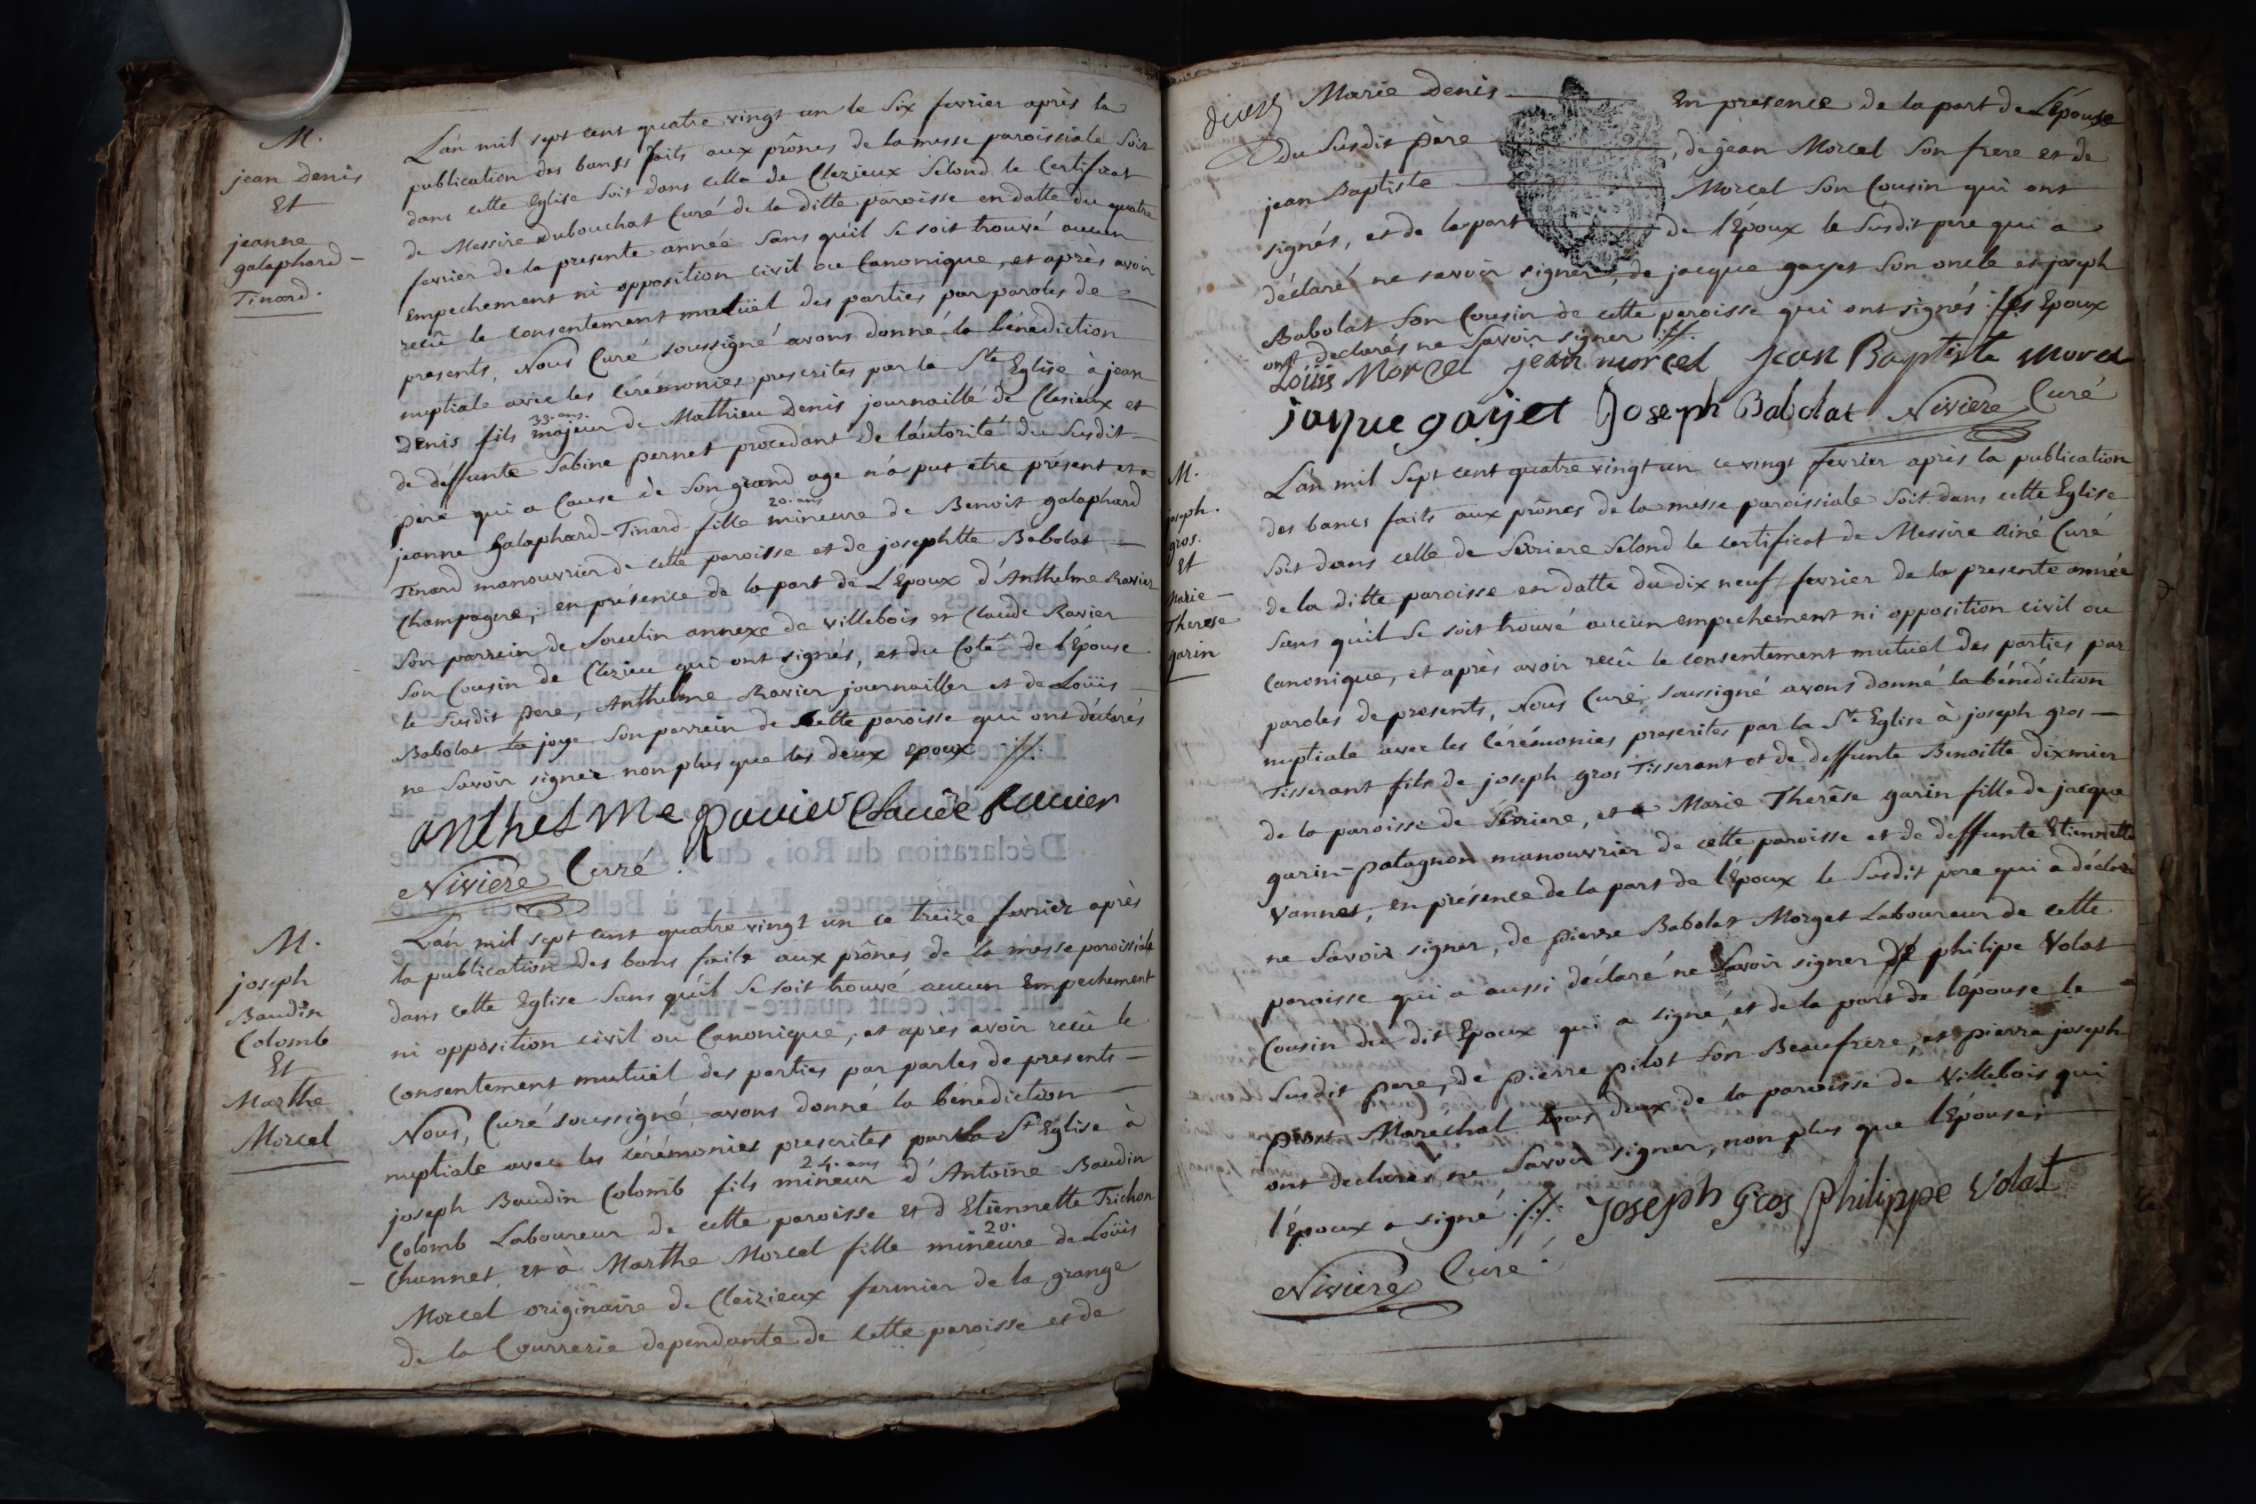 M.
jean Denis
Et
jeanne
galaphard-
Tinard.
L'an mil sept cent quatre vingt un le six fevrier après la
publication des bancs faits aux prônes de la messe paroissiale soit
dans cette Eglise soit dans celle de Clezieux selond le Certificat
de Messire Dubouchat Curé de la ditte paroisse en datte du quatre
fevrier de la presente année sans qu'il se soit trouvé aucun
empechement ni opposition civil ou Canonique, et après avoir
recû le consentement mutüel des parties par paroles de
presents, Nous Curé soussigné avons donné la bénédiction
nuptiale avec les cérémonies prescrites par la Ste Eglise à jean
33. ans.
Denis fils majeur de Mathieu Denis journaillé de Clesieux et
de deffunte Sabine pernet procedant de l'autorité du susdit
père qui a Cause de son grand age n'a put etre présent et a
20. ans
jeanne Galaphard-Tinard fille mineure de Benoit galaphard
Tinard manouvrier de cette paroisse et de josephtte Babolat
Champagne, en présence de la part de L'Epoux d'Anthelme Ravier
son parrein de Souclin annexe de villebois et Claude Ravier
son Cousin de Clezieu qui ont signés, et du Coté de l'Epouse
le susdit Pere, Anthelme Ravier journaillier et de Loüis
Babolat La joye son parrein de cette paroisse qui ont déclarés
ne savoir signer non plus que les deux epoux
anthelme Ravier Claude Ravier
Niviere Curé.
M.
joseph
Baudin
Colomb
Et
Marthe
Morcel
L'an mil sept cent quatre vingt un ce treize fevrier après
la publication des bans faits aux prônes de la messe paroissiale
dans cette Eglise sans qu'il se soit trouvé aucun Empechement
ni opposition civil ou Canonique, et apres avoir recû le
consentement mutuël des parties par parles de presents
Nous, Curé soussigné, avons donné la bénédiction
nuptiale avec les cérémonies prescrites par la Ste Eglise à
24. ans
joseph Baudin Colomb fils mineur d'Antoine Baudin
Colomb Laboureur de cette paroisse et d Etiennette Trichon
20.
Channet et à Marthe Morcel fille mineure de Loüis
Morcel originaire de Cleizieux fermier de la grange
de la Courrerie dependante de cette paroisse et de
Marie Denis En presence de la part de L'épouse
du susdit Père, de jean Morcel son frere et de
jean Baptiste Morcel son Cousin qui ont
signés, et de la part de l'Epoux le susdit pere qui a
déclaré ne savoir signer, de jacque gayet son oncle et joseph
Babolat son Cousin de cette paroisse qui ont signés les Epoux
ont declarés ne savoir signer
Loüis Morcel jean morcel Jean Baptiste Morcel
jayque gayet Joseph Babolat Niviere Curé
M.
joseph.
gros.
Et
Marie-
Therese
garin
L'an mil sept cent quatre vingt un ce vingt fevrier après la publication
des bancs faits aux prônes de la messe paroissiale soit dans cette Eglise
soit dans celle de serriere selond le certificat de Messire Ainé Curé
de la ditte paroisse en datte du dix neuf fevrier de la presente année
sans qu'il se soit trouvé aucun empechement ni opposition civil ou
canonique, et après avoir recû le consentement mutuël des parties par
paroles de presents, Nous Curé soussigné avons donné la bénédiction
nuptiale avec les Cérémonies prescrites par la Ste Eglise à joseph gros
Tisserant fils de joseph gros Tisserant et de deffunte Benoitte dixmier
de la paroisse de serriere, et a Marie Therêse garin fille de jacque
garin-patagnon manouvrier de cette paroisse et de deffunte Etiennette
Vannet, en présence de la part de l'Epoux le susdit pere qui a déclaré
ne savoir signer, de pierre Babolat Morget Laboureur de cette
paroisse qui a aussi déclaré ne savoir signer de philipe Volat
Cousin du dit Epoux qui a signé, et de la part de l'épouse le
susdit pere, de pierre pilot son Beaufrere, et pierre joseph
Maréchal tous deux de la paroisse de Villebois qui
ont declarés ne savoir signer, non plus que l'Epouse,
l'Epoux a signé Joseph Gros Philippe Volat
Niviere Curé.